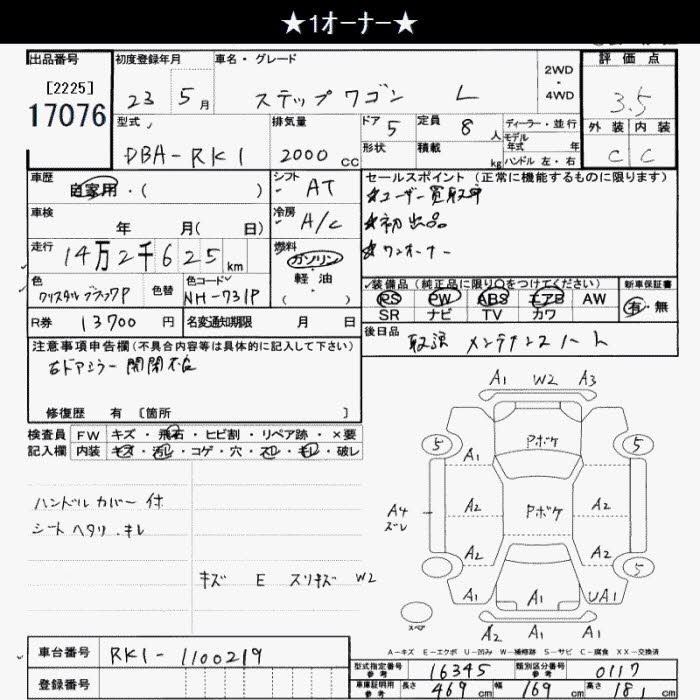 ★1オーナー★
出品番号 初度登録年月 車名・グレード 2WD・4WD 評価点
[2225]
17076
23 5月 ステップワゴン L 3.5
型式 排気量 ドア 5 定員 8人 ディーラー・並行 外装 内装
モデル年式 年
DBA-RK1 2000cc 形状 積載 kg ハンドル 左・右 C C
車歴 自家用・( ) シフト AT セールスポイント(正常に機能するものに限ります)
★ユーザー買取車
車検 年 月(日) 冷房 A/C ★初出品
走行 14万2千625km 燃料 ガソリン・軽油・( ) ★ワンオーナー
色 クリスタルブラックP 色替 色コード NH-731P 装備品(純正品に限り○をつけてください) 新車保証書
PS PW ABS エアB AW 有・無
SR ナビ TV カワ
R券 13700円 名変通知期限 月 日
後日品 取説 メンテナンスノート
注意事項申告欄(不具合内容等は具体的に記入して下さい)
右ドアミラー開閉不良
修復歴 有〔箇所 〕
検査員記入欄 FW キズ・飛石・ヒビ割・リペア跡・×要
内装 キズ・汚レ・コゲ・穴・スレ・キレ・破レ
ハンドルカバー付
シートヘタリ・キレ
キズ E スリキズ W2
A1 W2 A3
5 Pボケ 5
A1
A4 ズレ A2 Pボケ A2
A2 A2
5
A1 A1 UA1
スペア
A2 A1 A1
A-キズ E-エクボ U-凹み W-補修跡 S-サビ C-腐食 XX-交換済
車台番号 RK1-1100219
登録番号
型式指定番号参考 16345 類別区分番号参考 0117
車庫証明用参考 長さ 469cm 幅 169cm 高さ 181cm